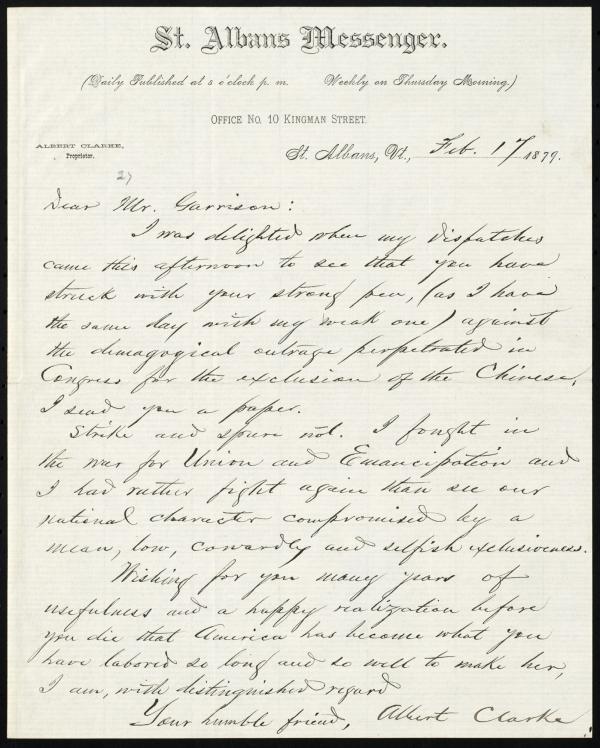 St. Albans Messenger.
(Daily Published at 5 o'clock p. m. Weekly on Thursday Morning.)
OFFICE NO. 10 KINGMAN STREET.
ALBERT CLARKE,
Proprietor.
St. Albans, Vt., Feb. 17 1879.
27
Dear Mr. Garrison:
I was delighted when my dispatches
came this afternoon to see that you have
struck with your strong pen, (as I have
the same day with my weak one) against
the demagogical outrage perpetrated in
Congress for the exclusion of the Chinese.
I send you a paper.
Strike and spare not. I fought in
the war for Union and Emancipation and
I had rather fight again than see our
national character compromised by a
mean, low, cowardly and selfish exclusiveness.
Wishing for you many years of
usefulness and a happy realization before
you die that America has become what you
have labored so long and so well to make her,
I am, with distinguished regard
Your humble friend, Albert Clarke